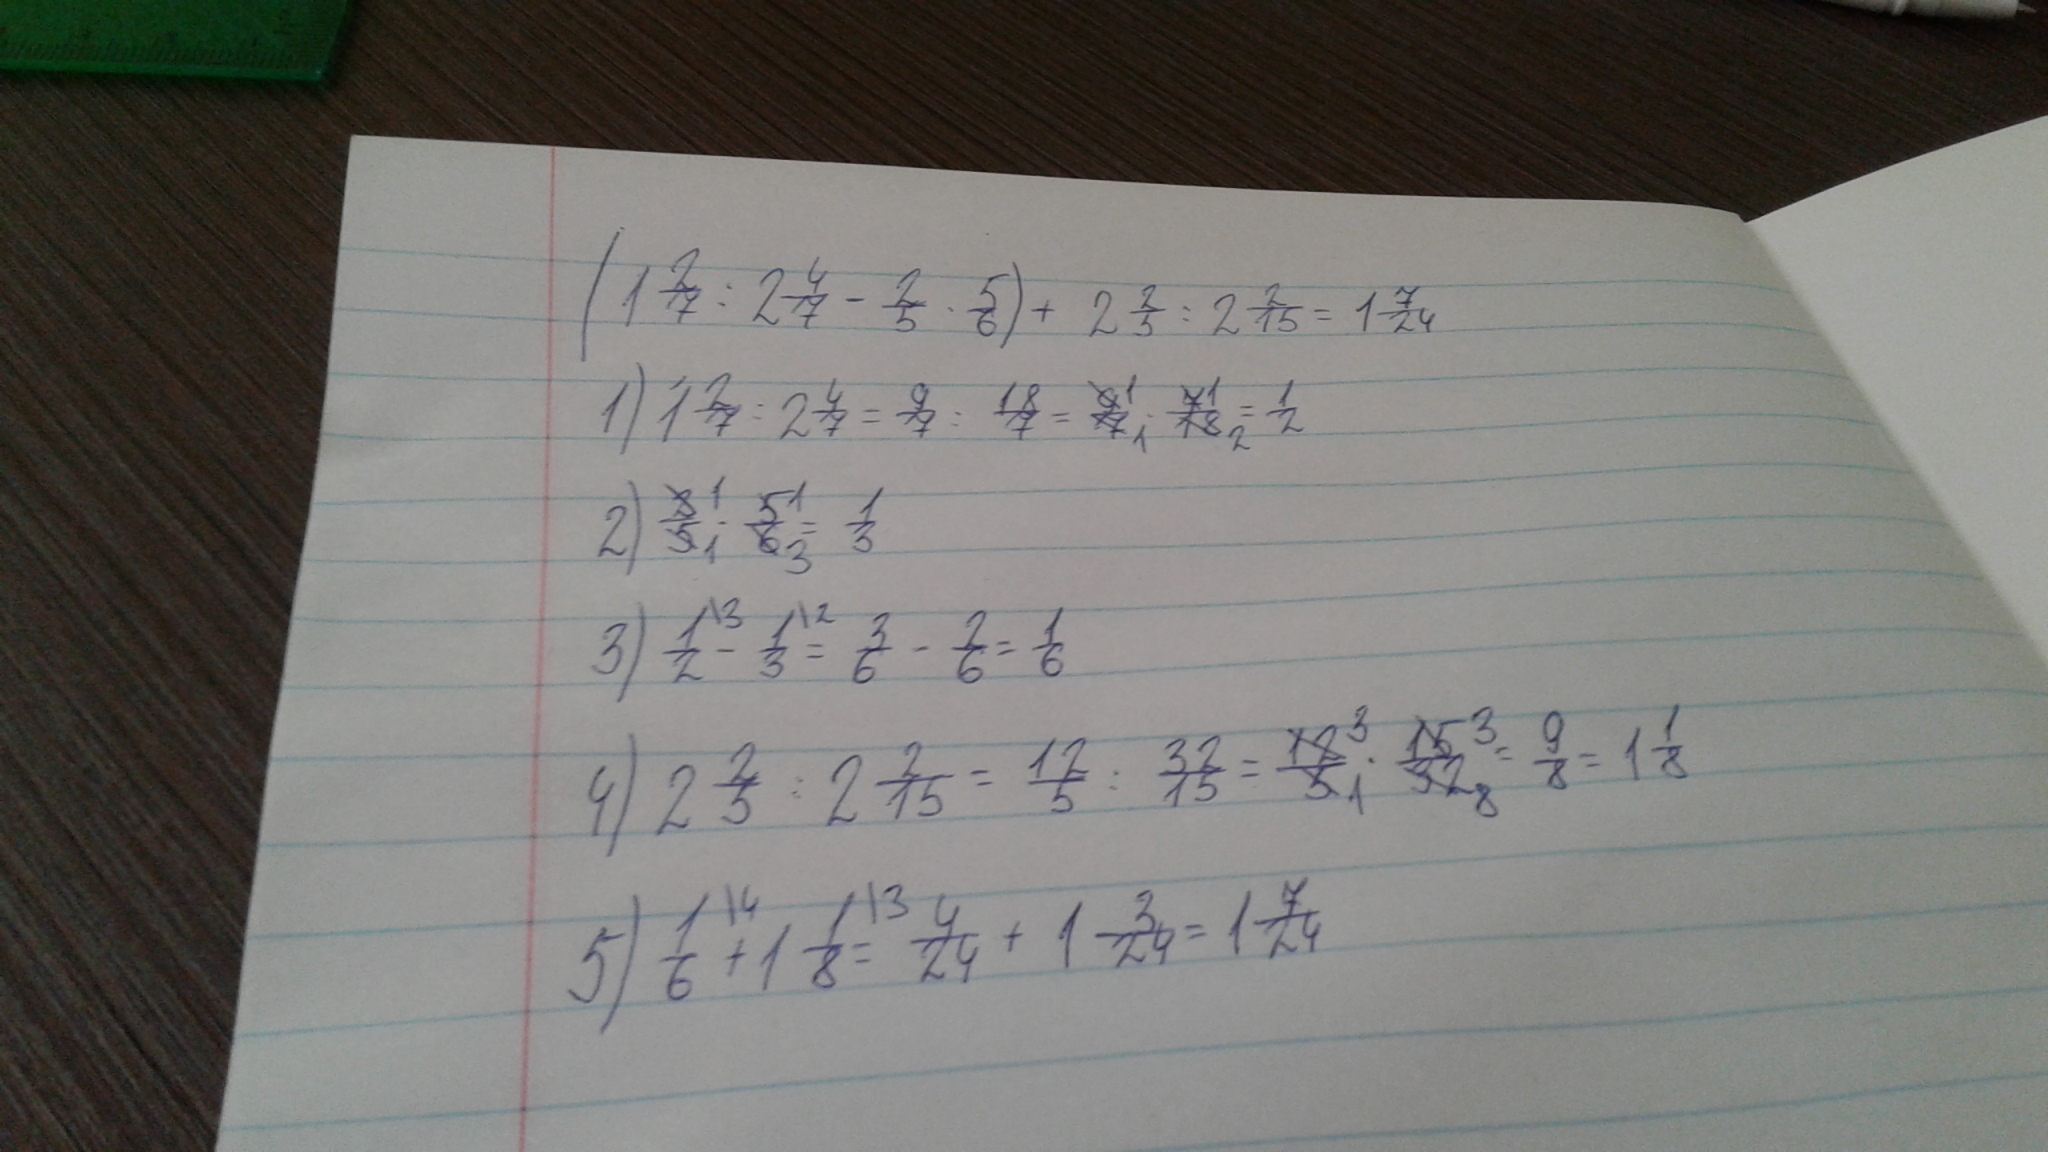 (1 2/7 : 2 4/7 - 2/5 · 5/6) + 2 2/5 : 2 2/15 = 1 7/24
1) 1 2/7 : 2 4/7 = 9/7 : 18/7 = 9 1/7 1 · 7 1/18 2 = 1/2
2) 2 1/5 1 · 5 1/6 3 = 1/3
3) 1/2 \3 - 1/3 \2 = 3/6 - 2/6 = 1/6
4) 2 2/5 : 2 2/15 = 12/5 : 32/15 = 12 3/5 1 · 15 3/32 8 = 9/8 = 1 1/8
5) 1/6 \4 + 1 1/8 \3 = 4/24 + 1 3/24 = 1 7/24